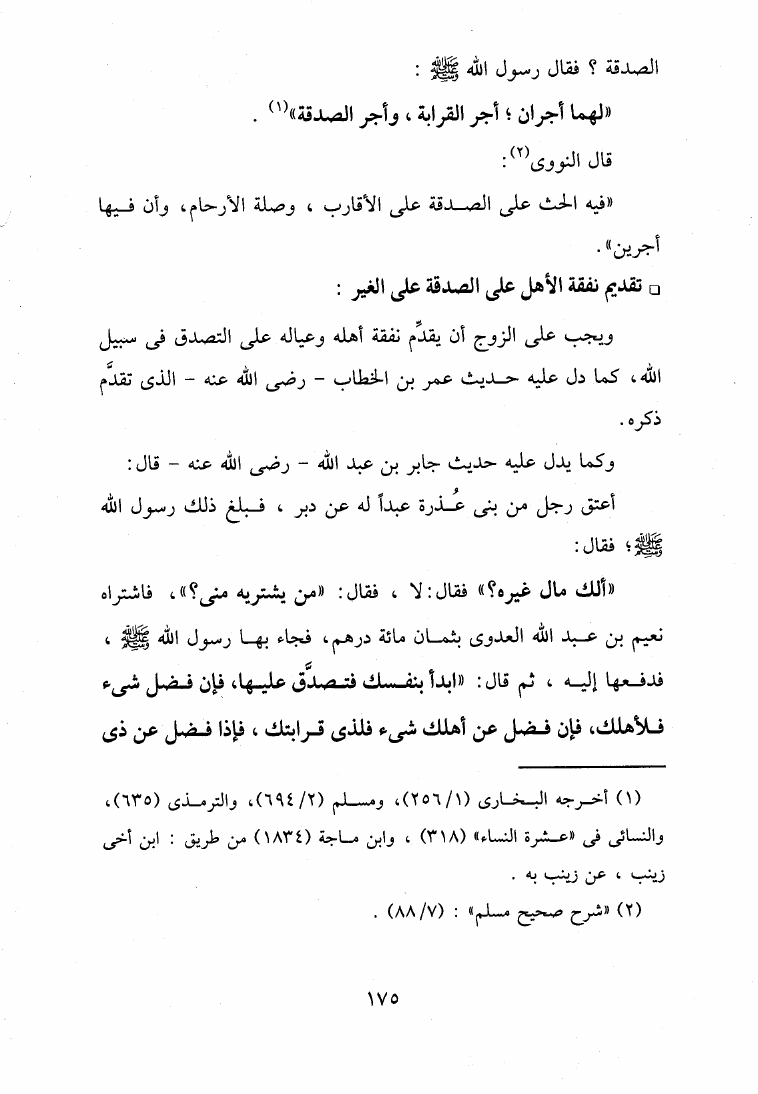 الصدقة ؟ فقال رسول الله ﷺ :
«لهما أجران ؛ أجر القرابة ، وأجر الصدقة»(١) .
قال النووى(٢):
«فيه الحث على الصدقة على الأقارب ، وصلة الأرحام، وأن فيها
أجرين».
□ تقديم نفقة الأهل على الصدقة على الغير :
ويجب على الزوج أن يقدِّم نفقة أهله وعياله على التصدق فى سبيل
الله، كما دل عليه حديث عمر بن الخطاب - رضى الله عنه - الذى تقدَّم
ذكره.
وكما يدل عليه حديث جابر بن عبد الله - رضى الله عنه - قال:
أعتق رجل من بنى عُذرة عبداً له عن دبر ، فبلغ ذلك رسول الله
ﷺ؛ فقال:
«ألك مال غيره؟» فقال: لا ، فقال: «من يشتريه منى؟»، فاشتراه
نعيم بن عبد الله العدوى بثمان مائة درهم، فجاء بها رسول الله ﷺ ،
فدفعها إليه ، ثم قال: «ابدأ بنفسك فتصدَّق عليها، فإن فضل شىء
فلأهلك، فإن فضل عن أهلك شىء فلذى قرابتك ، فإذا فضل عن ذى
(١) أخرجه البخارى (٢٥٦/١)، ومسلم (٦٩٤/٢)، والترمذى (٦٣٥)،
والنسائى فى «عشرة النساء» (٣١٨) ، وابن ماجة (١٨٣٤) من طريق : ابن أخى
زينب ، عن زينب به .
(٢) «شرح صحيح مسلم» : (٨٨/٧) .
١٧٥